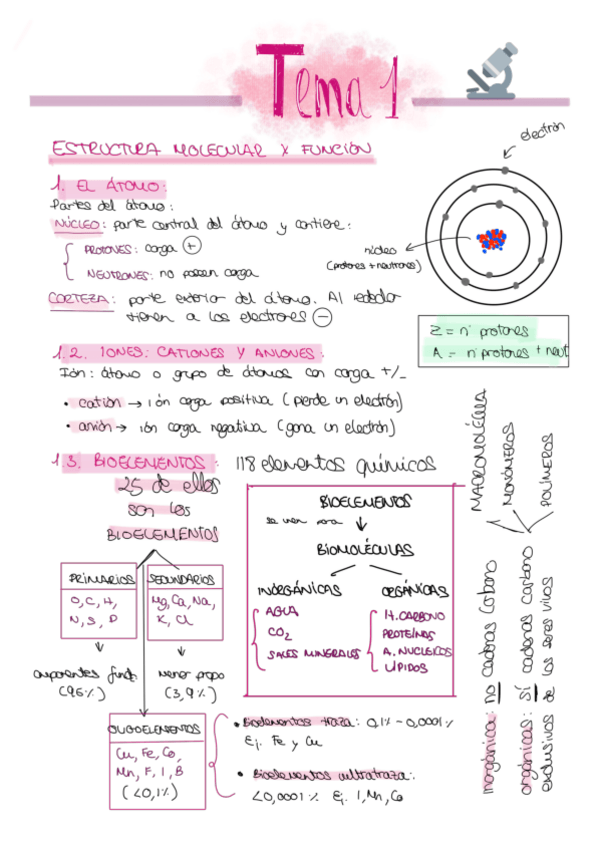 Tema 1
ESTRUCTURA MOLECULAR Y FUNCIÓN
electrón
1. EL ÁTOMO:
Partes del átomo:
NÚCLEO: parte central del átomo y contiene:
PROTONES: carga +
NEUTRONES: no poseen carga
núcleo
(protones + neutrones)
CORTEZA: parte exterior del átomo. Al rededor
tienen a los electrones -
Z = nº protones
A = nº protones + neut
1.2. IONES: CATIONES Y ANIONES:
Ión: átomo o grupo de átomos con carga +/-
• catión → ión carga positiva (pierde un electrón)
• anión → ión carga negativa (gana un electrón)
1.3. BIOELEMENTOS: 118 elementos químicos
25 de ellos
son los
BIOELEMENTOS
PRIMARIOS
O, C, H,
N, S, P
componentes fund.
(96%)
SECUNDARIOS
Mg, Ca, Na,
K, Cl
menor propo
(3,9%)
OLIGOELEMENTOS
Cu, Fe, Co,
Mn, F, I, B
(<0,1%)
• Bioelementos traza: 0,1% - 0,0001%
Ej. Fe y Cu
• Bioelementos ultratraza:
<0,0001% Ej. I, Mn, Co
BIOELEMENTOS
se unen para
BIOMOLÉCULAS
INORGÁNICAS
AGUA
CO2
SALES MINERALES
ORGÁNICAS
H. CARBONO
PROTEÍNAS
A. NUCLEICOS
LÍPIDOS
MACROMOLÉCULA
MONÓMEROS
POLÍMEROS
inorgánica: no cadenas carbono
orgánicas: sí cadenas carbono
exclusivas de los seres vivos